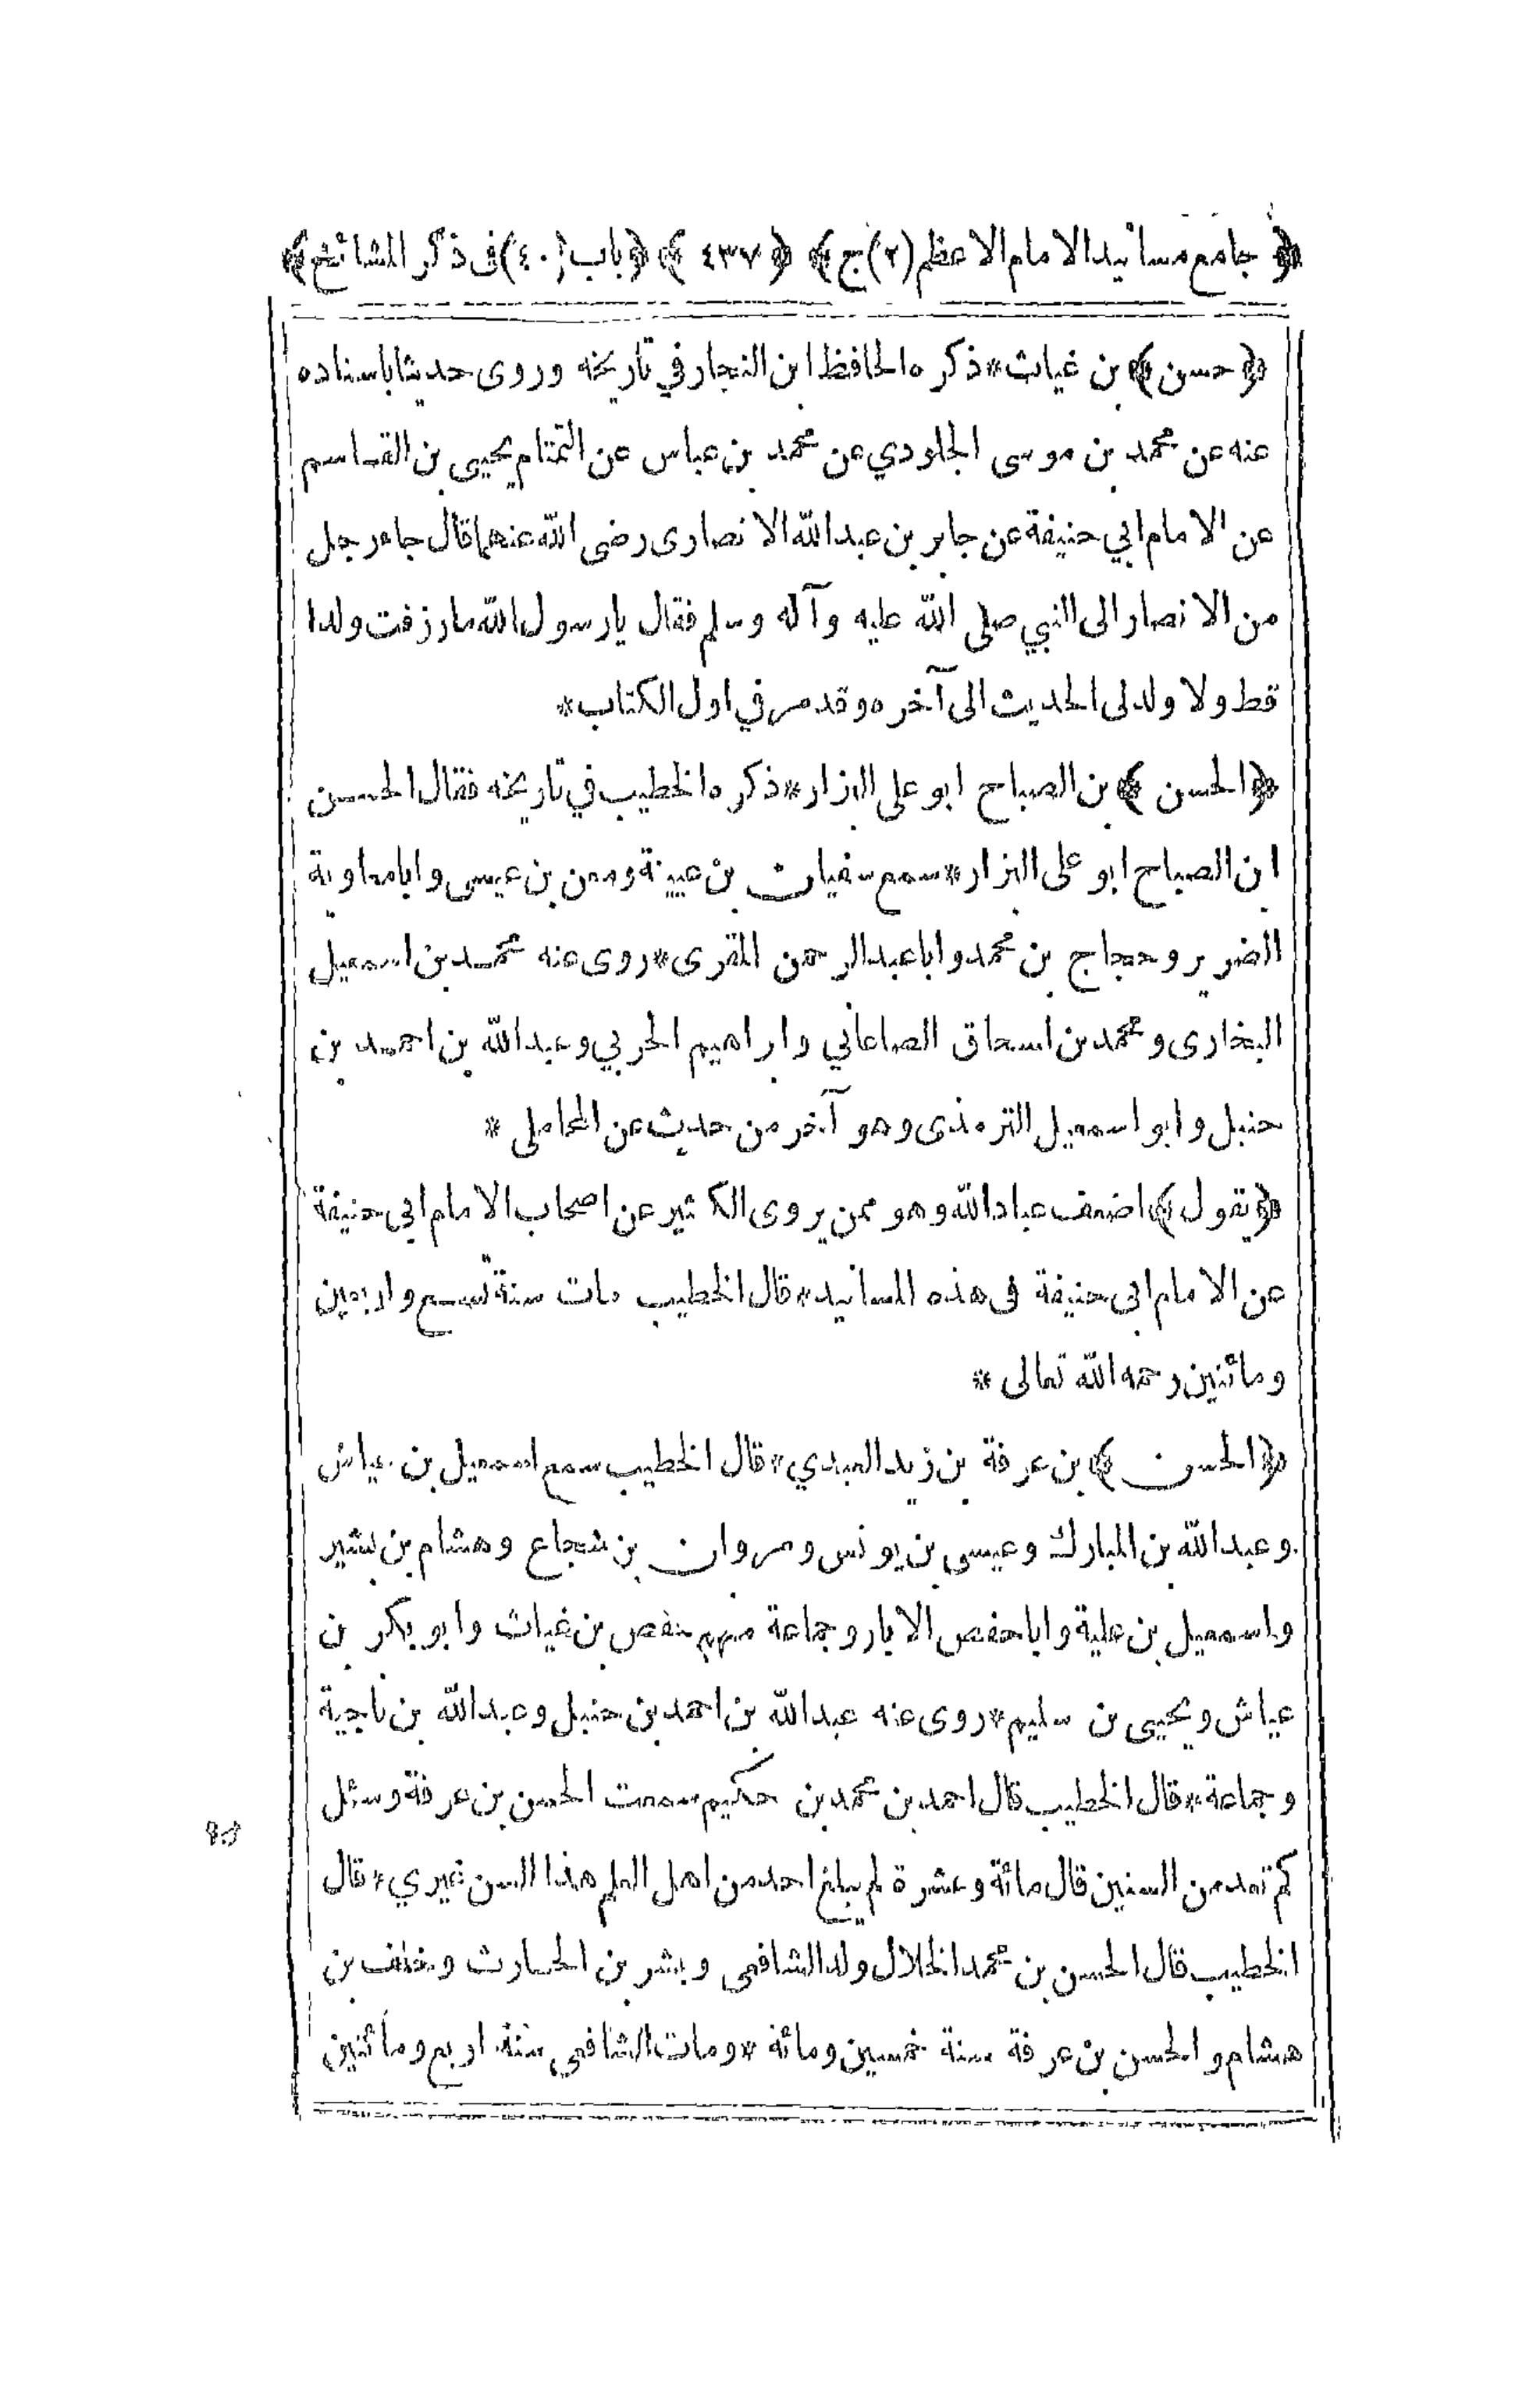 ﴿ جامع مسانيد الامام الاعظم (٢) ج ﴾ ﴿ ٤٣٧ ﴾ ﴿ باب (٤٠) فى ذكر المشائخ ﴾
﴿ حسن ﴾ بن غياث * ذكره الحافظ ابن النجار في تاريخه وروى حديثا باسناده
عنه عن محمد بن موسى الجلودي عن محمد بن عباس عن التمتام يحيى بن القاسم
عن الامام ابي حنيفة عن جابر بن عبدالله الانصارى رضى الله عنهما قال جاء رجل
من الانصار الى النبي صلى الله عليه وآله وسلم فقال يا رسول الله ما رزقت ولدا
قط ولا ولد لى الحديث الى آخره وقد مر في اول الكتاب *
﴿ الحسن ﴾ بن الصباح ابو على البزار * ذكره الخطيب في تاريخه فقال الحسن
ابن الصباح ابو على البزار * سمع سفيان بن عيينة ومعن بن عيسى وابا معاوية
الضرير وحجاج بن محمد وابا عبدالرحمن المقرى * روى عنه محمد بن اسمعيل
البخارى ومحمد بن اسحاق الصاغاني وابراهيم الحربي وعبدالله بن احمد بن
حنبل وابو اسمعيل الترمذى وهو آخر من حديث عن المحاملى *
﴿ يقول ﴾ اضعف عباد الله وهو ممن يروى الكثير عن اصحاب الامام ابى حنيفة
عن الامام ابى حنيفة فى هذه المسانيد * قال الخطيب مات سنة تسع واربعين
ومائتين رحمه الله تعالى *
﴿ الحسن ﴾ بن عرفة بن زيد العبدي * قال الخطيب سمع اسمعيل بن عياش
وعبدالله بن المبارك وعيسى بن يونس ومروان بن شجاع وهشام بن بشير
واسمعيل بن علية وابا حفص الابار وجماعة منهم حفص بن غياث وابو بكر بن
عياش ويحيى بن سليم * روى عنه عبدالله بن احمد بن حنبل وعبدالله بن ناجية
وجماعة * قال الخطيب قال احمد بن محمد بن حكيم سمعت الحسن بن عرفة وسئل
كم تعد من السنين قال مائة وعشرة لم يبلغ احد من اهل العلم هذا السن غيري * قال
الخطيب قال الحسن بن محمد الخلال ولد الشافعى وبشر بن الحارث وخلف بن
هشام والحسن بن عرفة سنة خمسين ومائة * ومات الشافعي سنة اربع ومائتين